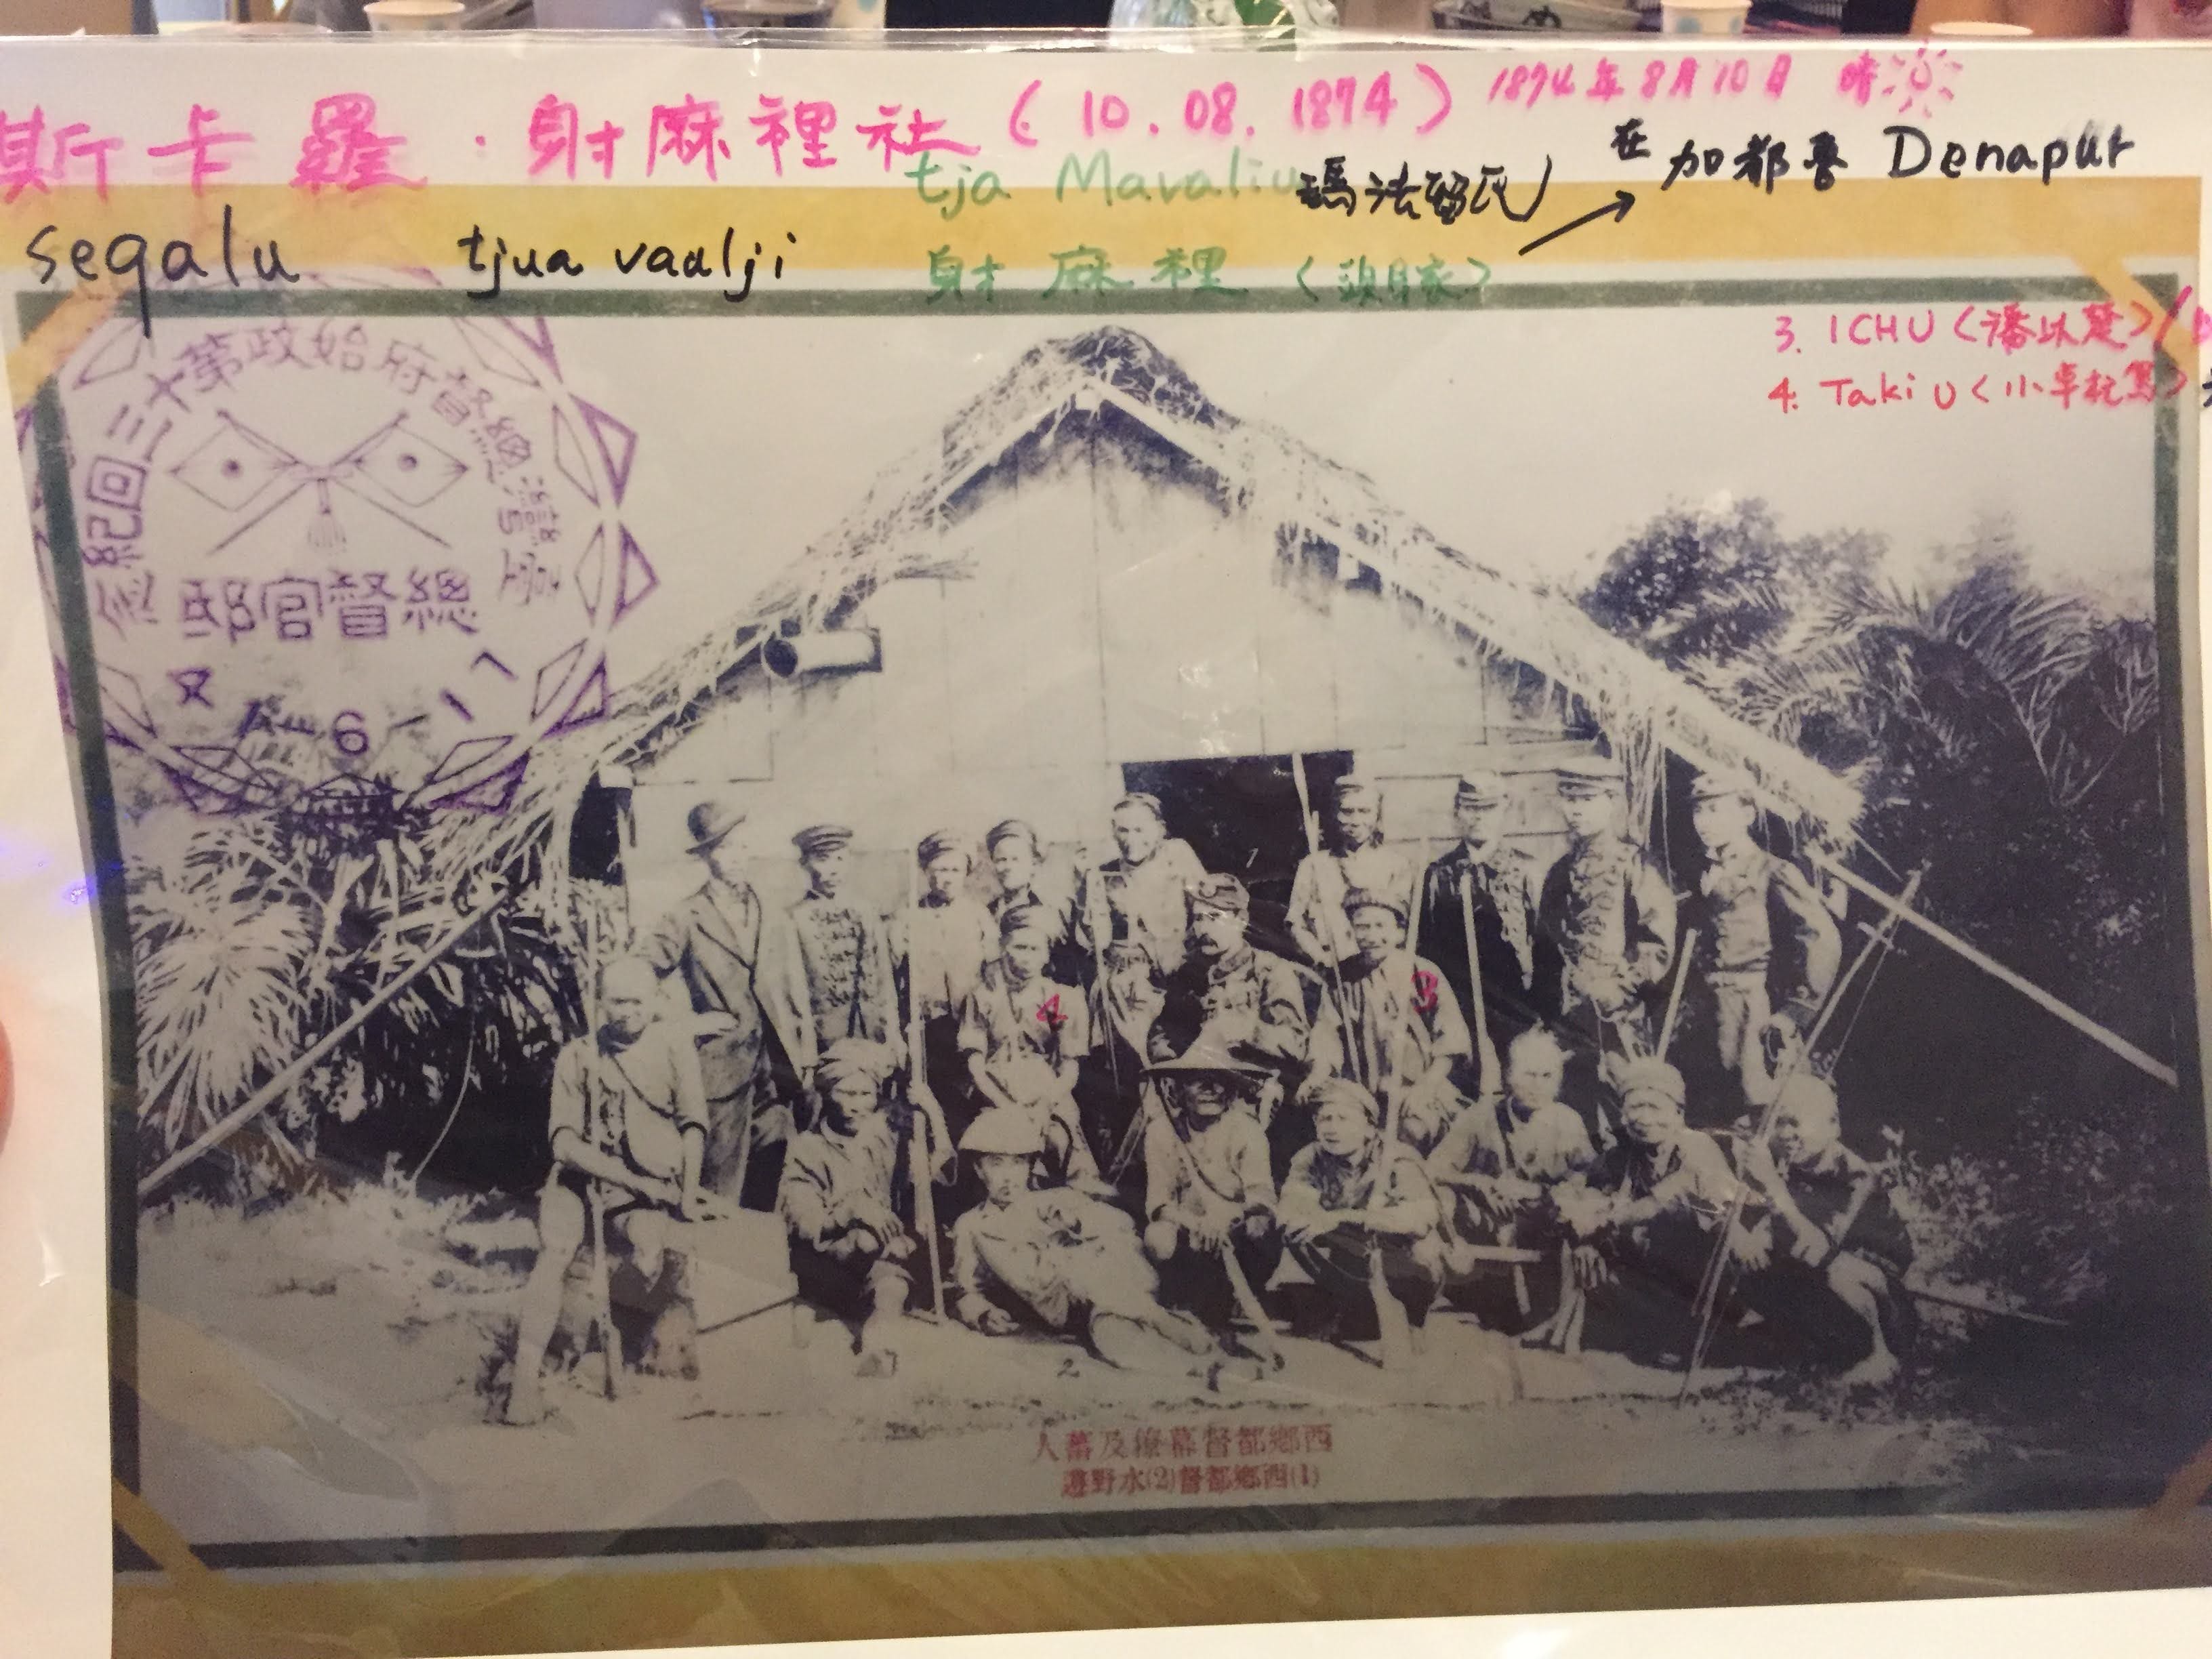 斯卡羅·射麻裡社(10.08.1874) 1874年8月10日 晴
tja Mavaliu 瑪法留氏 在加都魯 Denapur
seqalu tjua vaalji 射麻裡〈頭目家〉
3. ICHU〈潘以楚〉
4. Taki U〈小卓杞篤〉
臺灣總督府始政第十三回紀念
總督官邸
6
1
4
3
2
西鄉都督幕僚及蕃人
(1)西鄉都督(2)水野遵